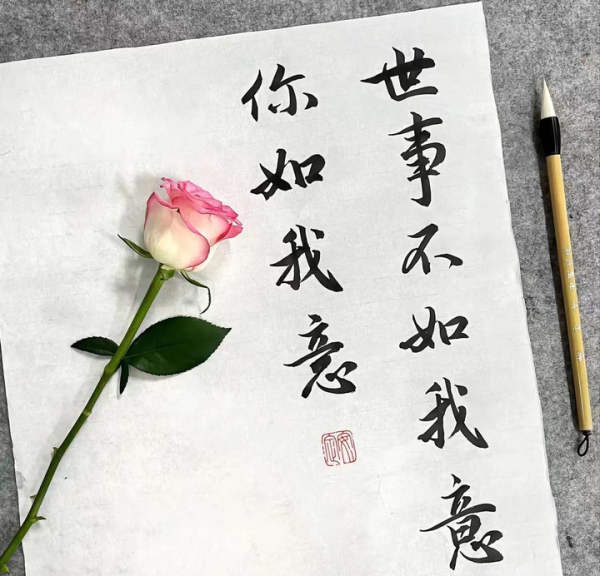 世事不如我意
你如我意